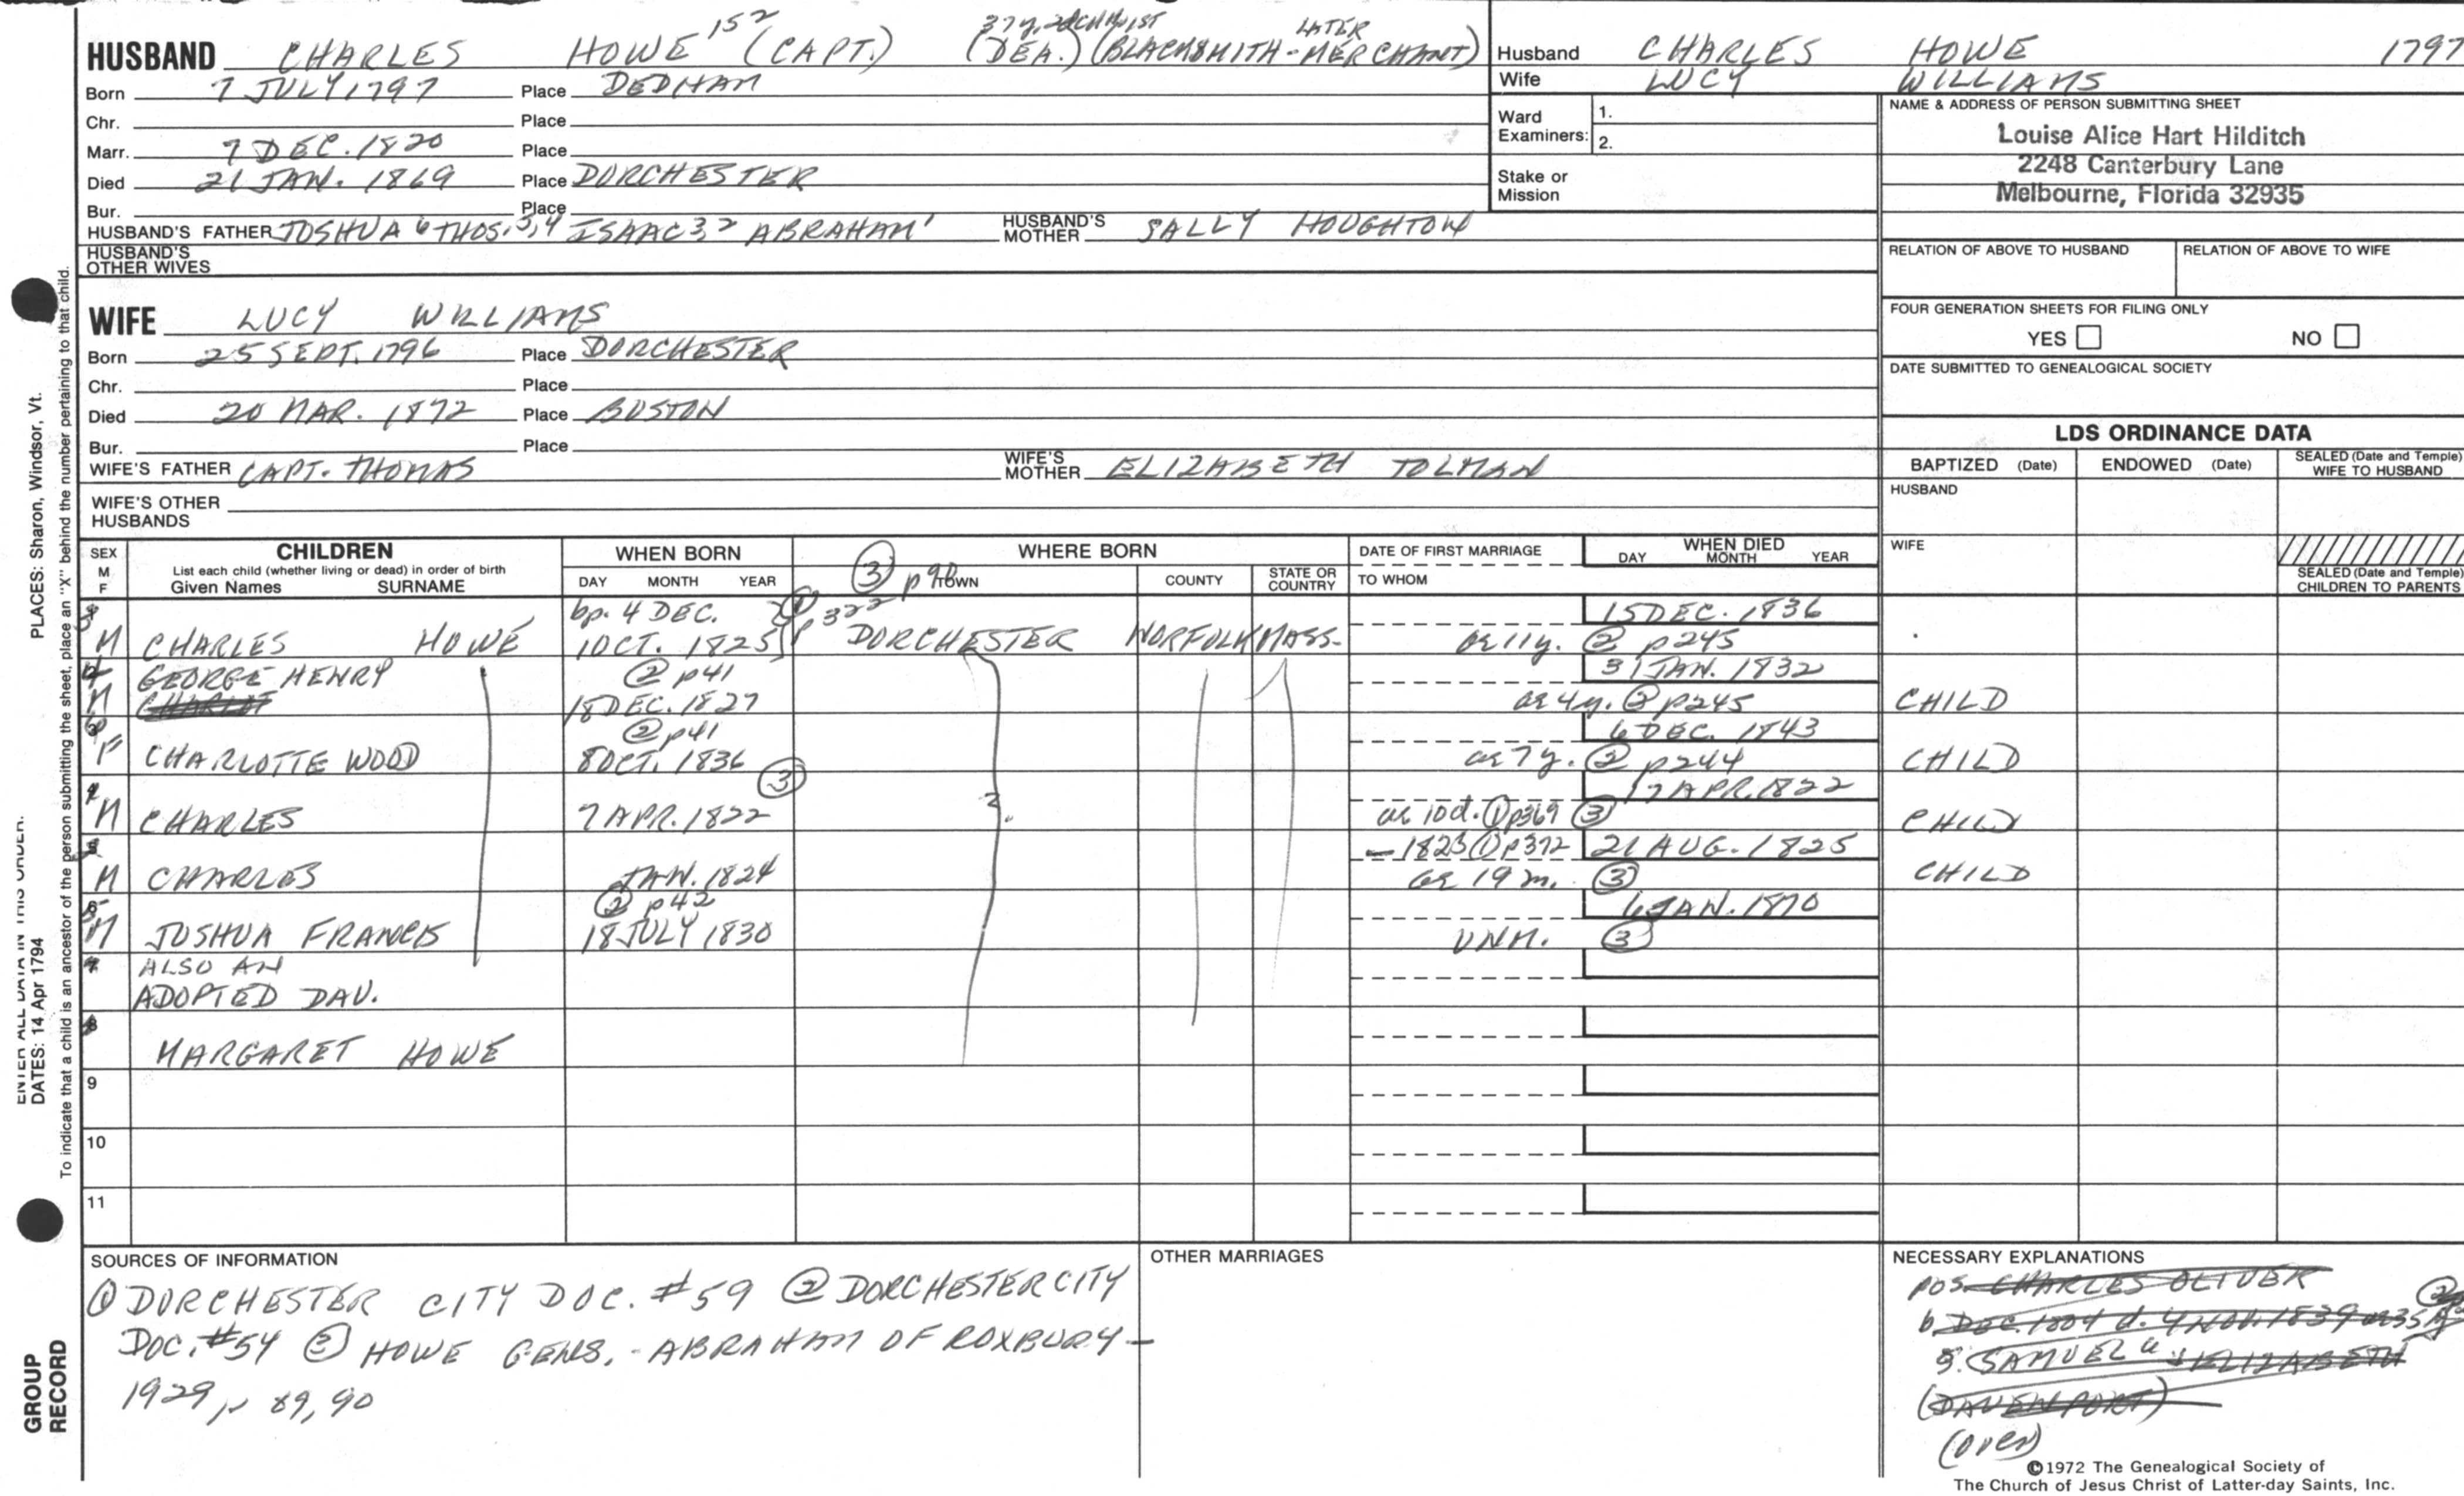 37 y. 2d CH. LATER
HUSBAND CHARLES HOWE 152 (CAPT.) (DEA.) (BLACKSMITH-MERCHANT)
Born 7 JULY 1797 Place DEDHAM
Chr. Place
Marr. 7 DEC. 1820 Place
Died 21 JAN. 1869 Place DORCHESTER
Bur. Place
HUSBAND'S FATHER JOSHUA 6 THOS. 5,4 ISAAC 3,2 ABRAHAM 1 HUSBAND'S MOTHER SALLY HOUGHTON
HUSBAND'S OTHER WIVES
WIFE LUCY WILLIAMS
Born 25 SEPT. 1796 Place DORCHESTER
Chr. Place
Died 20 MAR. 1872 Place BOSTON
Bur. Place
WIFE'S FATHER CAPT. THOMAS WIFE'S MOTHER ELIZABETH TOLMAN
WIFE'S OTHER HUSBANDS
Husband CHARLES HOWE 1797
Wife LUCY WILLIAMS
Ward Examiners: 1.
2.
Stake or Mission
NAME & ADDRESS OF PERSON SUBMITTING SHEET
Louise Alice Hart Hilditch
2248 Canterbury Lane
Melbourne, Florida 32935
RELATION OF ABOVE TO HUSBAND RELATION OF ABOVE TO WIFE
FOUR GENERATION SHEETS FOR FILING ONLY
YES NO
DATE SUBMITTED TO GENEALOGICAL SOCIETY
LDS ORDINANCE DATA
BAPTIZED (Date) ENDOWED (Date) SEALED (Date and Temple) WIFE TO HUSBAND
HUSBAND
WIFE
SEALED (Date and Temple) CHILDREN TO PARENTS
SEX M F CHILDREN WHEN BORN WHERE BORN DATE OF FIRST MARRIAGE WHEN DIED
List each child (whether living or dead) in order of birth
Given Names SURNAME DAY MONTH YEAR ③ p 90 TOWN COUNTY STATE OR COUNTRY TO WHOM DAY MONTH YEAR
bp. 4 DEC. ① p 322 15 DEC. 1836
M CHARLES HOWE 1 OCT. 1825 DORCHESTER NORFOLK MASS. ae 11 y. ② p245
GEORGE HENRY ② p41 31 JAN. 1832
M 18 DEC. 1827 ae 4 y. ② p245 CHILD
② p41 6 DEC. 1843
F CHARLOTTE WOOD 8 OCT. 1836 ae 7 y. ② p244 CHILD
③ 17 APR. 1822
M CHARLES 7 APR. 1822 ae 10 d. ① p369 ③ CHILD
- 1823 ① p372 21 AUG. 1825
M CHARLES JAN. 1824 ae 19 m. ③ CHILD
② p42 6 JAN. 1870
M JOSHUA FRANCIS 18 JULY 1830 UNM. ③
ALSO AN
ADOPTED DAU.
8
MARGARET HOWE
9
10
11
SOURCES OF INFORMATION
① DORCHESTER CITY DOC. #59 ② DORCHESTER CITY
DOC. #54 ③ HOWE GENS. - ABRAHAM OF ROXBURY -
1929 p 89, 90
OTHER MARRIAGES
NECESSARY EXPLANATIONS
pos. CHARLES OLIVER
b DEC. 1804 d. 4 NOV. 1839 ae 35
s. SAMUEL & ELIZABETH
(DAVENPORT)
(over)
©1972 The Genealogical Society of
The Church of Jesus Christ of Latter-day Saints, Inc.
PLACES: Sharon, Windsor, Vt.
ENTER ALL DATA IN THIS ORDER:
DATES: 14 Apr 1794
To indicate that a child is an ancestor of the person submitting the sheet, place an "X" behind the number pertaining to that child.
GROUP
RECORD